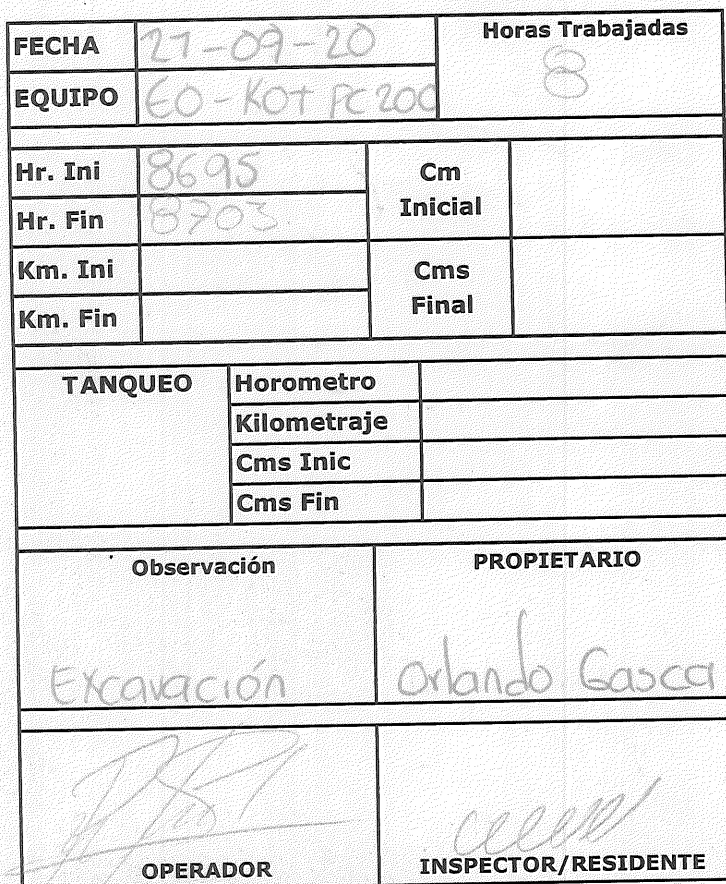 FECHA 21-09-20 Horas Trabajadas
EQUIPO EO-KOT PC200 8
Hr. Ini 8695 Cm
Hr. Fin 8703 Inicial
Km. Ini Cms
Km. Fin Final
TANQUEO Horometro
Kilometraje
Cms Inic
Cms Fin
Observación PROPIETARIO
Excavación Orlando Gasca
OPERADOR INSPECTOR/RESIDENTE